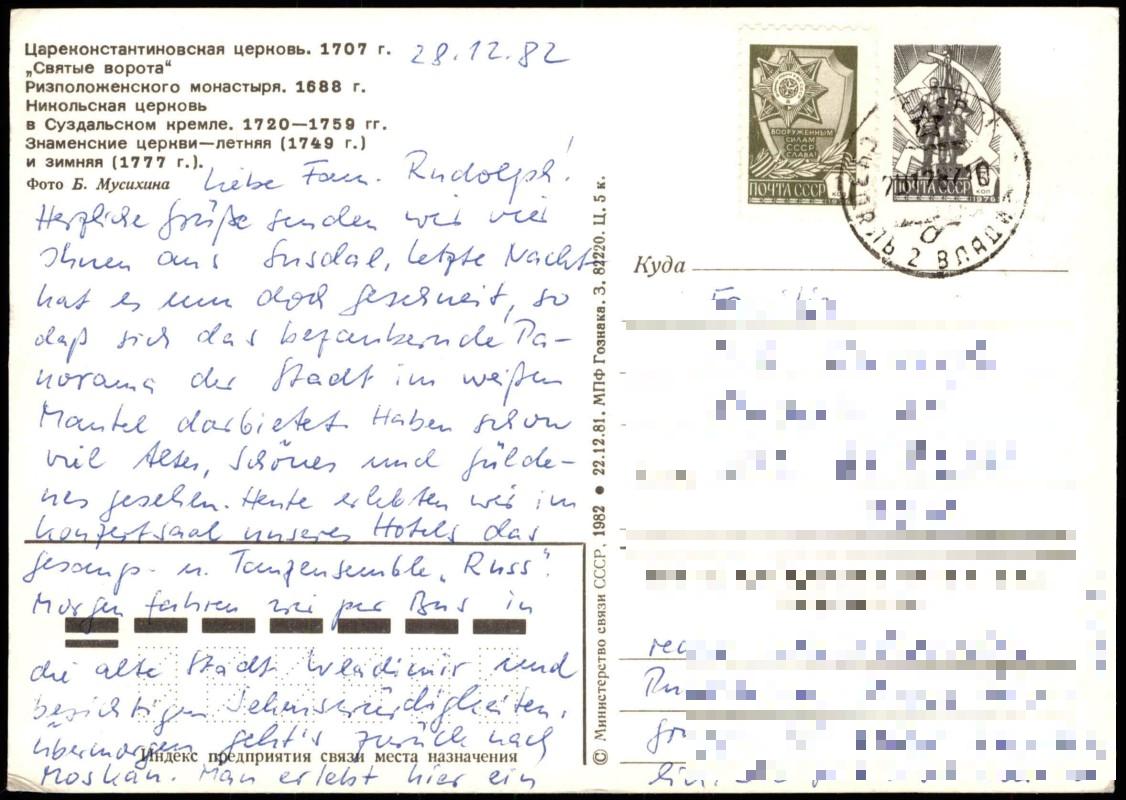 Цареконстантиновская церковь. 1707 г.
„Святые ворота“
Ризположенского монастыря. 1688 г.
Никольская церковь
в Суздальском кремле. 1720—1759 гг.
Знаменские церкви—летняя (1749 г.)
и зимняя (1777 г.).
Фото Б. Мусихина
28.12.82
Liebe Fam. Rudolph!
Herzliche Grüße senden wir vier
Ihnen aus Susdal, letzte Nacht
hat es nun doch geschneit, so
daß sich das bezaubernde Pa-
norama der Stadt im weißen
Mantel darbietet. Haben schon
viel Altes, Schönes und Gülde-
nes gesehen. Heute erlebten wir im
Konzertsaal unseres Hotels das
Gesangs- u. Tanzensemble „Russ“.
Morgen fahren wir per Bus in
die alte Stadt Wladimir und
besichtigen Sehenswürdigkeiten,
übermorgen geht's zurück nach
Moskau. Man erlebt hier ein
Индекс предприятия связи места назначения
© Министерство связи СССР. 1982 ● 22.12.81. МПФ Гознака. З. 82220. Ц. 5 к.
ВООРУЖЕННЫМ
СИЛАМ
СССР
СЛАВА!
ПОЧТА СССР 1 КОП
ПОЧТА СССР КОП
1976
Куда